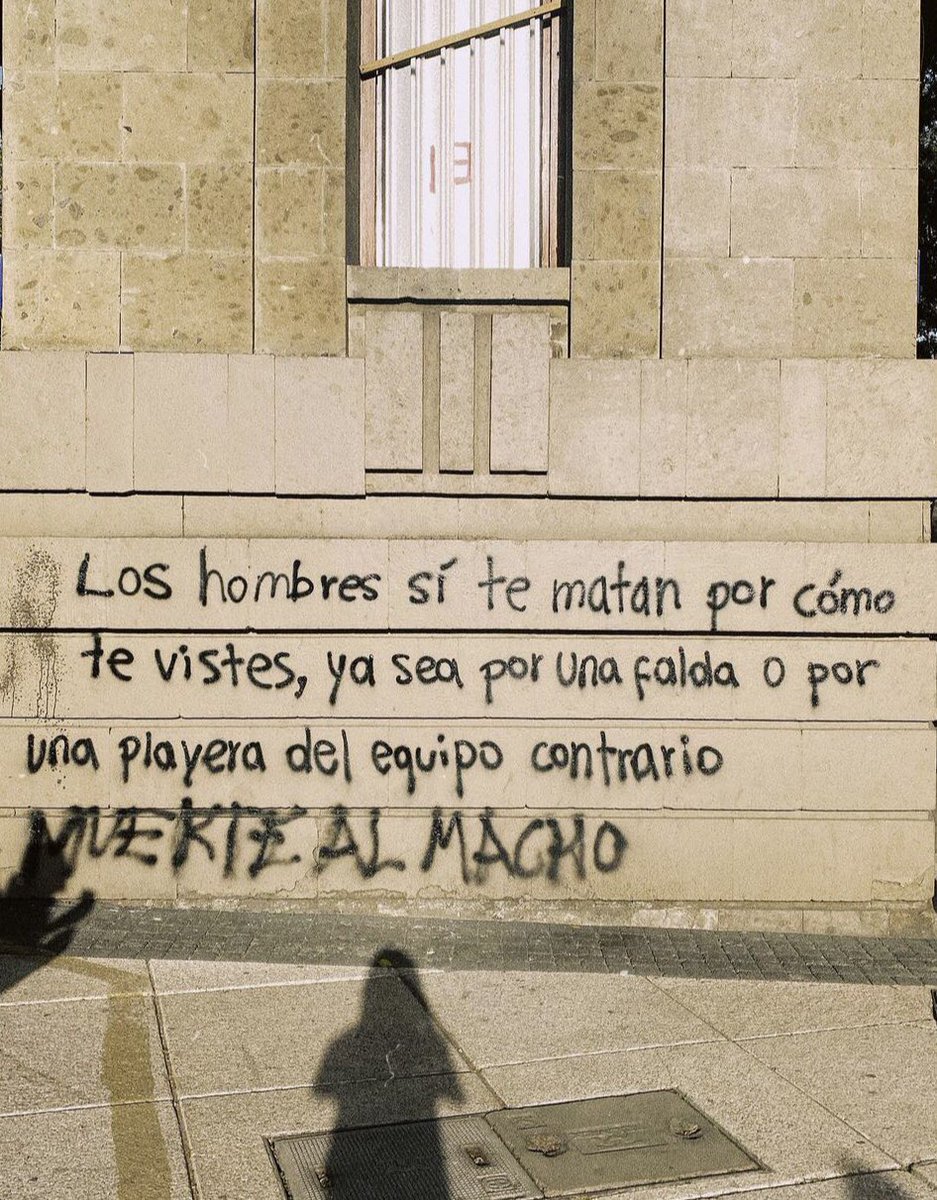 13
Los hombres sí te matan por cómo
te vistes, ya sea por una falda o por
una playera del equipo contrario
MUERTE AL MACHO